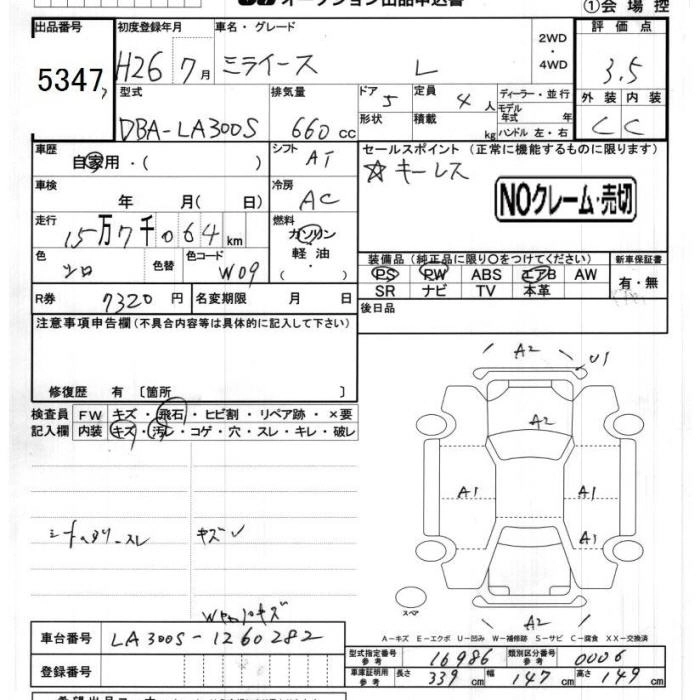 オークション出品申込書
①会場控
出品番号 初度登録年月 車名・グレード 2WD・4WD 評価点
5347 H26 7月 ミライース L 3.5
型式 排気量 ドア 5 定員 4人 ディーラー・並行 外装 内装
DBA-LA300S 660cc 形状 積載 kg モデル年式 年 ハンドル 左・右 C C
車歴 自家用・( ) シフト AT セールスポイント(正常に機能するものに限ります)
☆キーレス
車検 年 月( 日) 冷房 AC NOクレーム・売切
走行 15万7千064km 燃料 ガソリン 軽油 ・( )
色 シロ 色替 色コード W09
装備品(純正品に限り○をつけてください) 新車保証書
PS PW ABS エアB AW 有・無
SR ナビ TV 本革
R券 7320円 名変期限 月 日 後日品
注意事項申告欄(不具合内容等は具体的に記入して下さい)
修復歴 有 〔箇所 〕
検査員 FW キズ・飛石・ヒビ割・リペア跡・×要
記入欄 内装 キズ・汚レ・コゲ・穴・スレ・キレ・破レ
A2 U1
A2
A1 A1
A1
キズ
スペア A2
A-キズ E-エクボ U-凹み W-補修跡 S-サビ C-腐食 XX-交換済
車台番号 LA300S-1260282
型式指定番号 参考 16986 類別区分番号 参考 0006
登録番号 車庫証明用 参考 長さ 339cm 幅 147cm 高さ 149cm